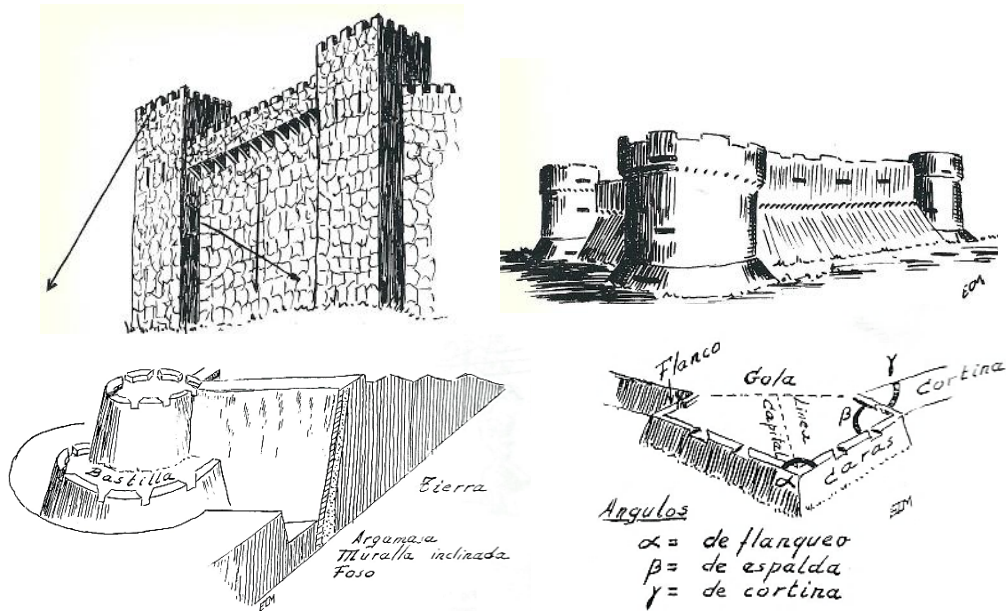 EDM
Bastilla
Tierra
Argamasa
Muralla inclinada
Foso
EDM
Flanco
Gola
γ
cortina
β
Linea
capital
caras
α
EDM
Angulos
α = de flanqueo
β = de espalda
γ = de cortina